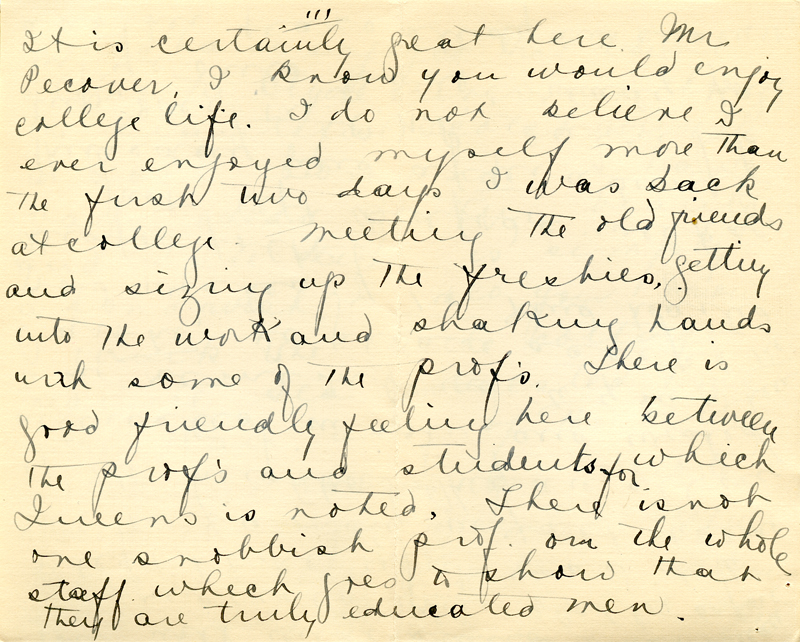 It is certainly great here. Mr
Pecover, I know you would enjoy
college life. I do not believe I
ever enjoyed myself more than
the first two days I was back
at college. Meeting the old friends
and sizing up the freshies, getting
into the work and shaking hands
with some of the prof's. There is
good friendly feeling here between
the prof's and students for which
Queens is noted. There is not
one snobbish prof. on the whole
staff which goes to show that
they are truly educated men.